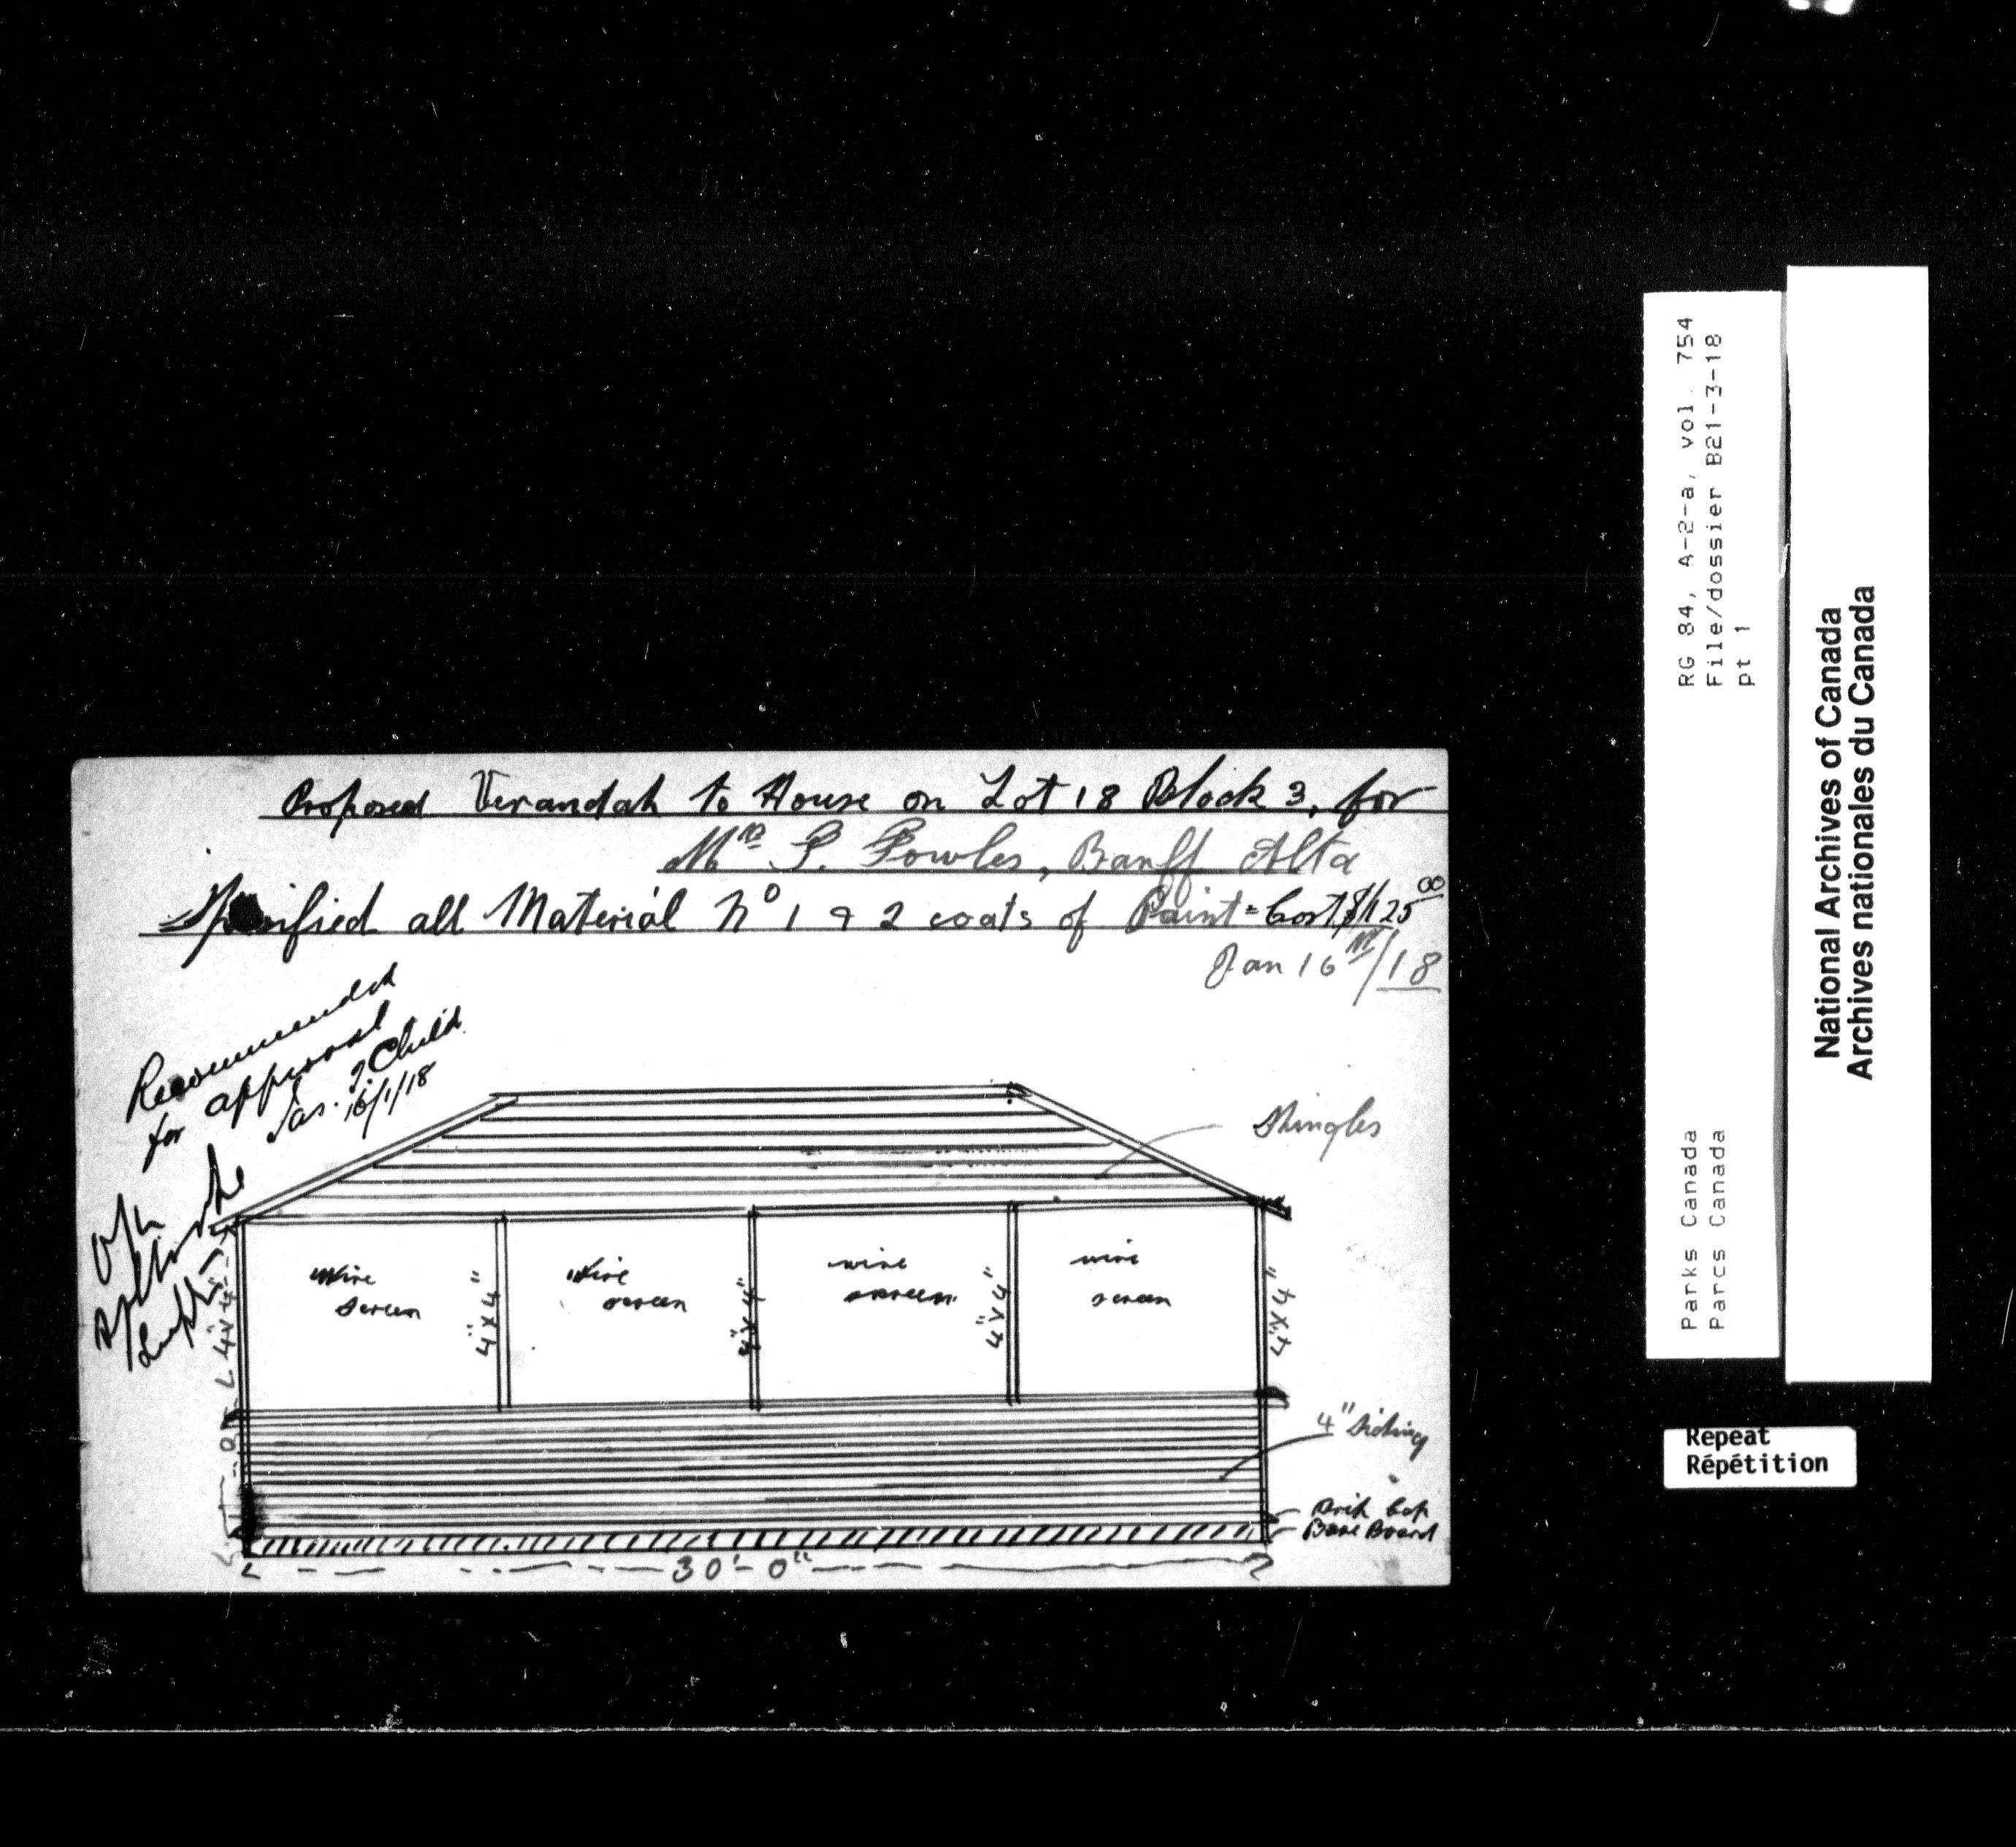 Proposed Verandah to House on Lot 18 Block 3, for
Mrs P. Fowles, Banff Alta
Specified all Material No 1 & 2 coats of Paint = Cost $125 00
Jan 16th/18
Recommended
for approval
Jas. I. Child
16/1/18
OK
Supt
Shingles
wire
screen
wire
screen
wire
screen
wire
screen
4"x4"
4"x4"
4"x4"
4"x4"
4"x4"
4" Siding
Drip Cap
Base Board
30'-0"
RG 84, A-2-a, vol. 754
File/dossier B21-3-18
pt 1
Parks Canada
Parcs Canada
National Archives of Canada
Archives nationales du Canada
Repeat
Répétition